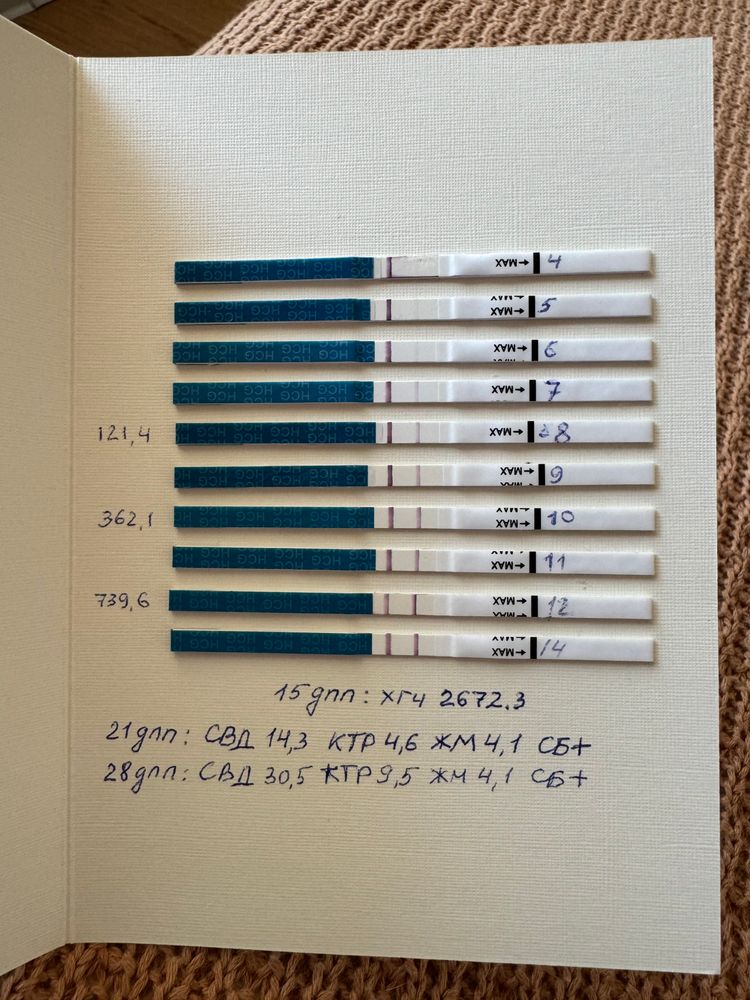 HCG HCG HCG HCG ←MAX 4
HCG HCG HCG HCG ←MAX 5
HCG HCG HCG HCG ←MAX 6
HCG HCG HCG HCG ←MAX 7
121,4 HCG HCG HCG HCG ←MAX 8
HCG HCG HCG HCG ←MAX 9
362,1 HCG HCG HCG HCG ←MAX 10
HCG HCG HCG HCG ←MAX 11
739,6 HCG HCG HCG HCG ←MAX 12
HCG HCG HCG HCG ←MAX 14
15дпп: ХГЧ 2672.3
21дпп: СВД 14,3 КТР 4,6 ЖМ 4,1 СБ+
28дпп: СВД 30,5 КТР 9,5 ЖМ 4,1 СБ+